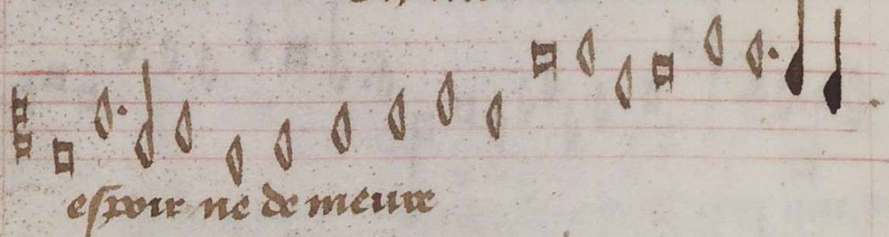 espoir ne demeure